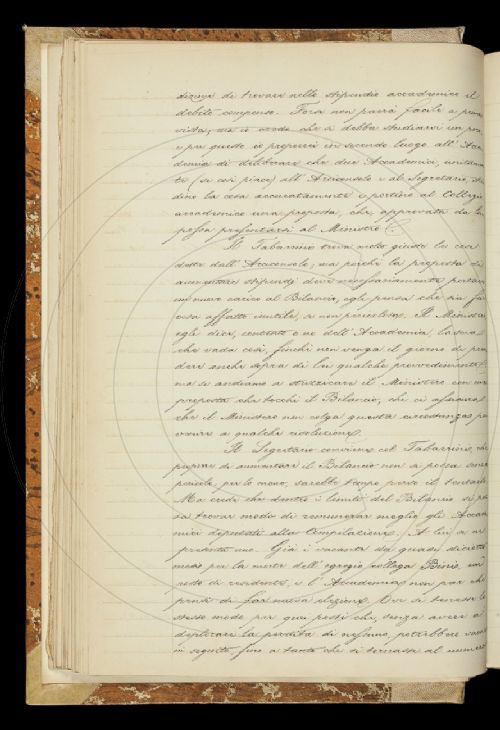 di trovare nello stipendio accademico il
debito compenso. Forse non parrà facile a prima
vista, ma io credo che si debba studiare un poco,
e per questo io proporrei in secondo luogo all' Acca
demia di deliberare che due Accademici, unitamen
te (se così piace) all' Arciconsolo e al Segretario, stu
dino la cosa accuratamente e portino al Collegio
accademico una proposta, che, approvata da lui
possa presentarsi al Ministro
Il Tabarrini trova molto giuste le cose
dette dall' Arciconsolo, ma perchè la proposta di
aumentare stipendj deve necessariamente portare
un nuovo carico al Bilancio, egli pensa che sia
cosa affatto inutile, se non pericolosa. Il Ministro
egli dice, contento o no dell' Accademia, lascia
che vada così, finchè non venga il giorno di pren
dere anche sopra di lei qualche provvedimento;
ma se andiamo a stuzzicare il Ministero con una
proposta che tocchi il Bilancio, chi ci assicura
che il Ministero non colga questa circostanza per
venire a qualche risoluzione?
Il Segretario conviene col Tabarrini, che
proporre di aumentare il Bilancio non si possa senza
pericolo, per lo meno, sarebbe tempo perso il tentarlo.
Ma crede che dentro i limiti del Bilancio si pos
sa trovar modo di remunerar meglio gli Accade
mici deputati alla Compilazione. A lui se ne
presenta uno. Già è vacante da quasi diciotto
mesi per la morte dell' egregio collega Bonis, un
posto di residente, e l' Accademia non par che
pensi di far nuova elezione. Ora si tenesse lo
stesso modo per quei posti che, senza avere a
deplorare la perdita di nessuno, potrebbero vacare
in seguito, fino a tanto che si tornasse al numero